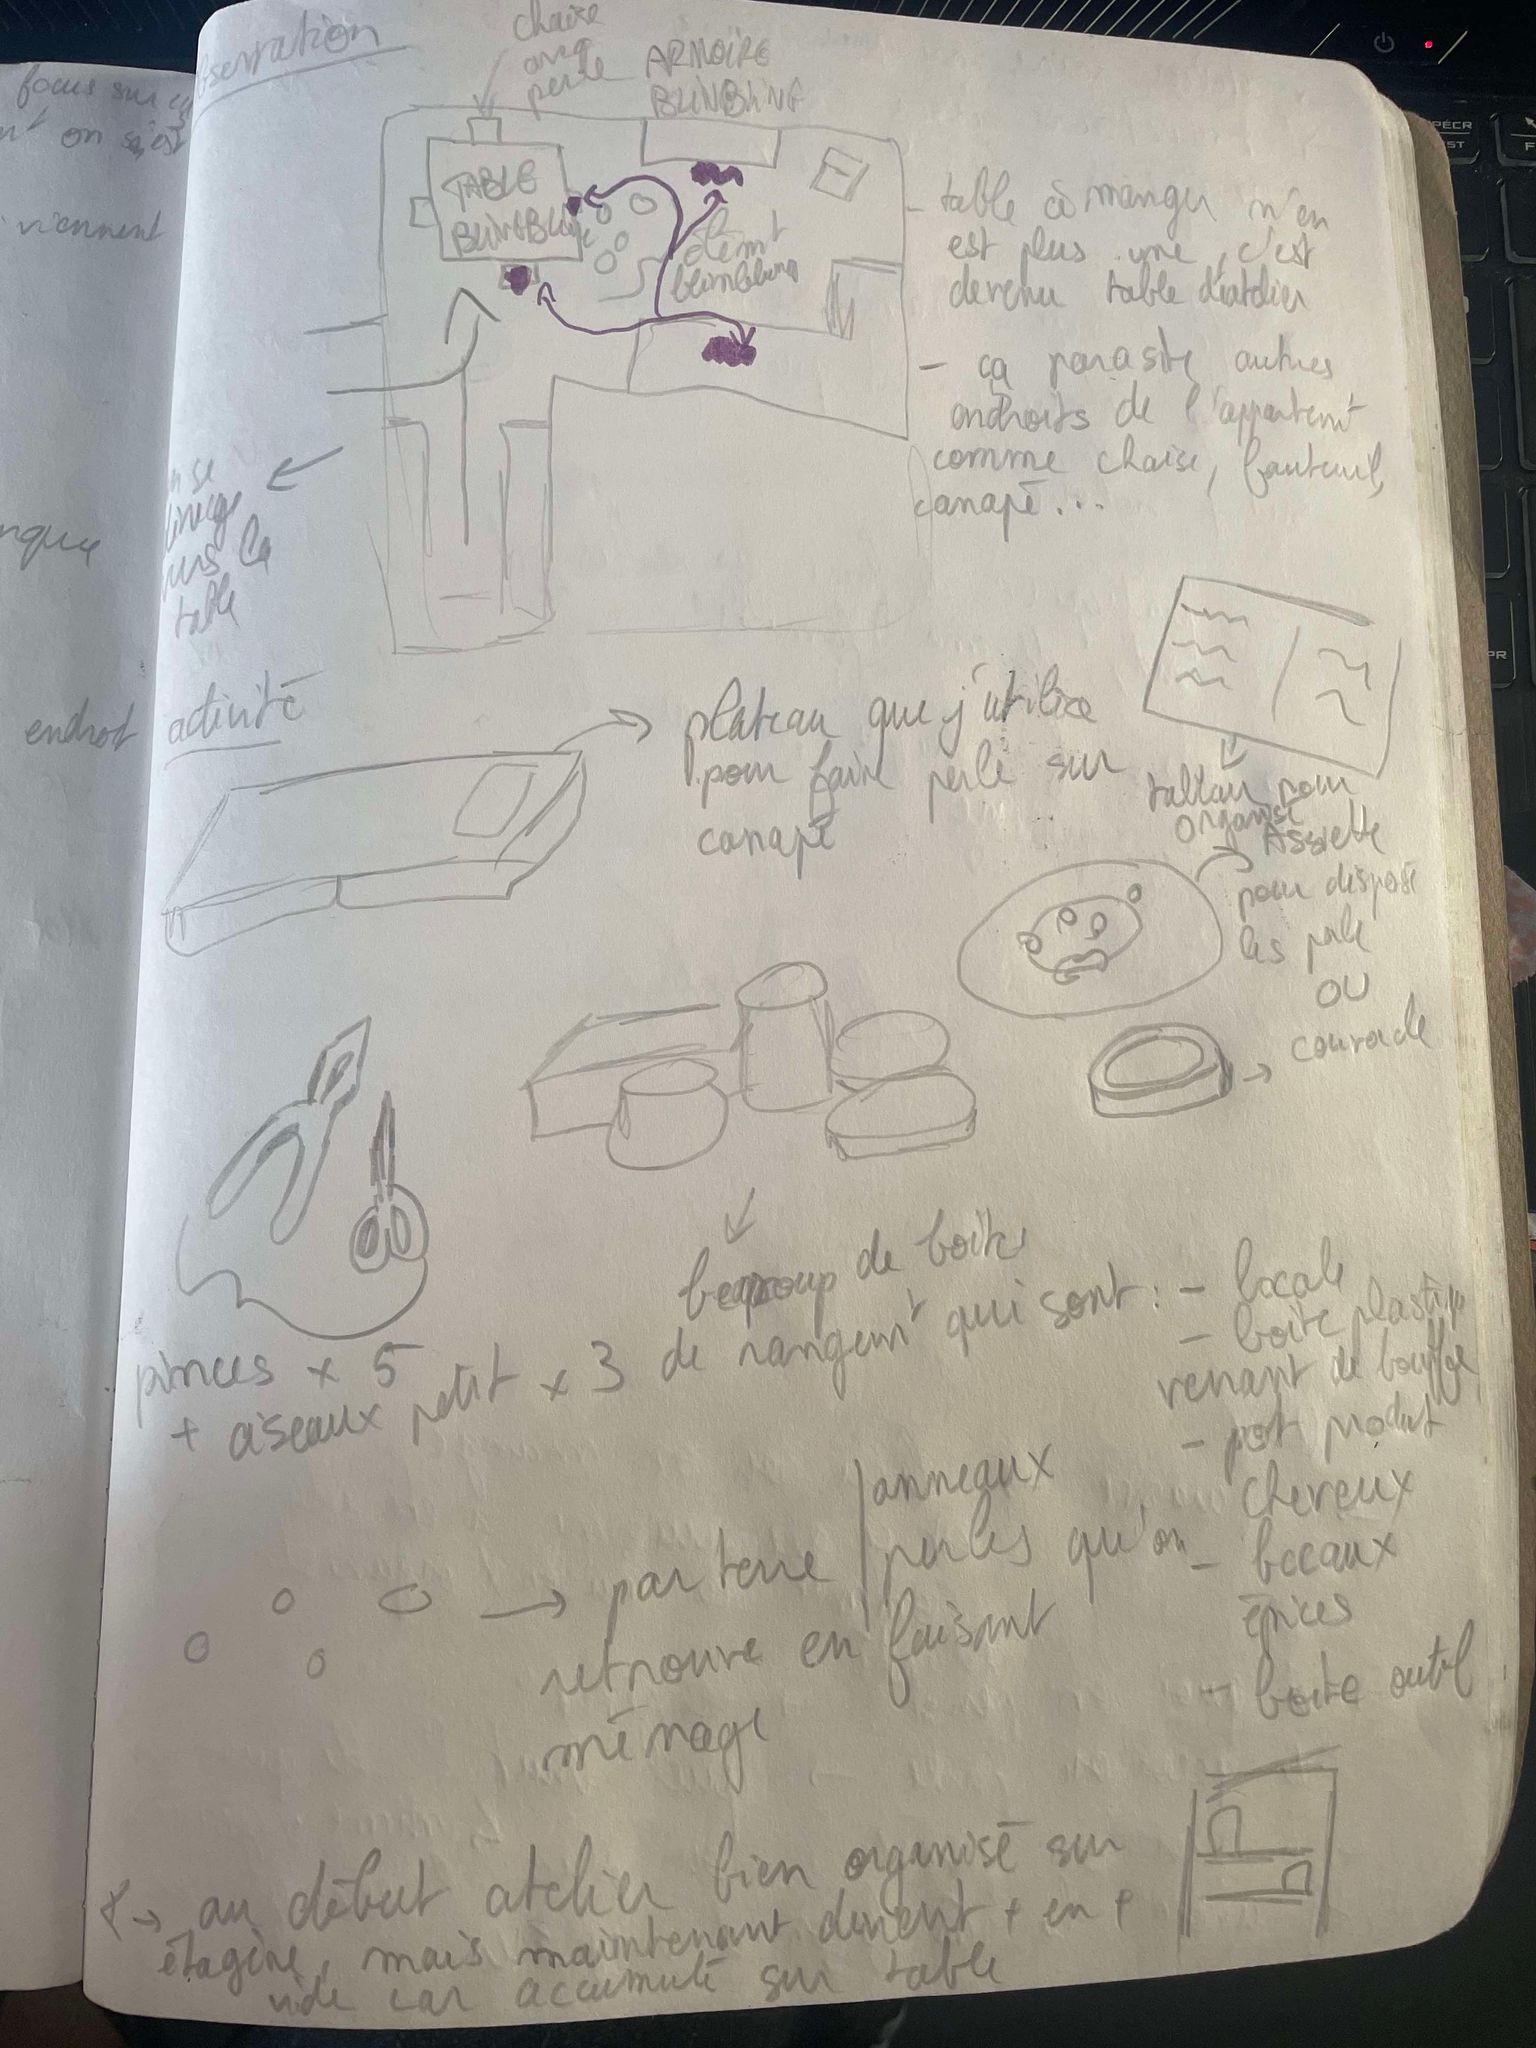 observation
focus sur
on s'est
viennent
chaise
avec
perle
ARMOIRE
BLINGBLING
TABLE
BLINGBLING
blingbling
- table à manger n'en
est plus une, c'est
devenu table d'atelier
- ça parasite autres
endroits de l'appartemt
comme chaise, fauteuil,
canapé...
se
dirige
vers la
table
endroit activité
plateau que j'utilise
pour faire perle sur
canapé
tableau pour
organisé
Assiette
pour disposé
les perle
OU
couvercle
beaucoup de boites
de rangemt qui sont :
- bocale
- boite plastique
venant de bouffe
- pot produit
cheveux
- bocaux
épices
- boite outil
pinces x 5
+ ciseaux petit x 3
par terre
anneaux
perles qu'on
retrouve en faisant
ménage
→ au début atelier bien organisé sur
étagère, mais maintenant devient + en +
vide car accumulé sur table